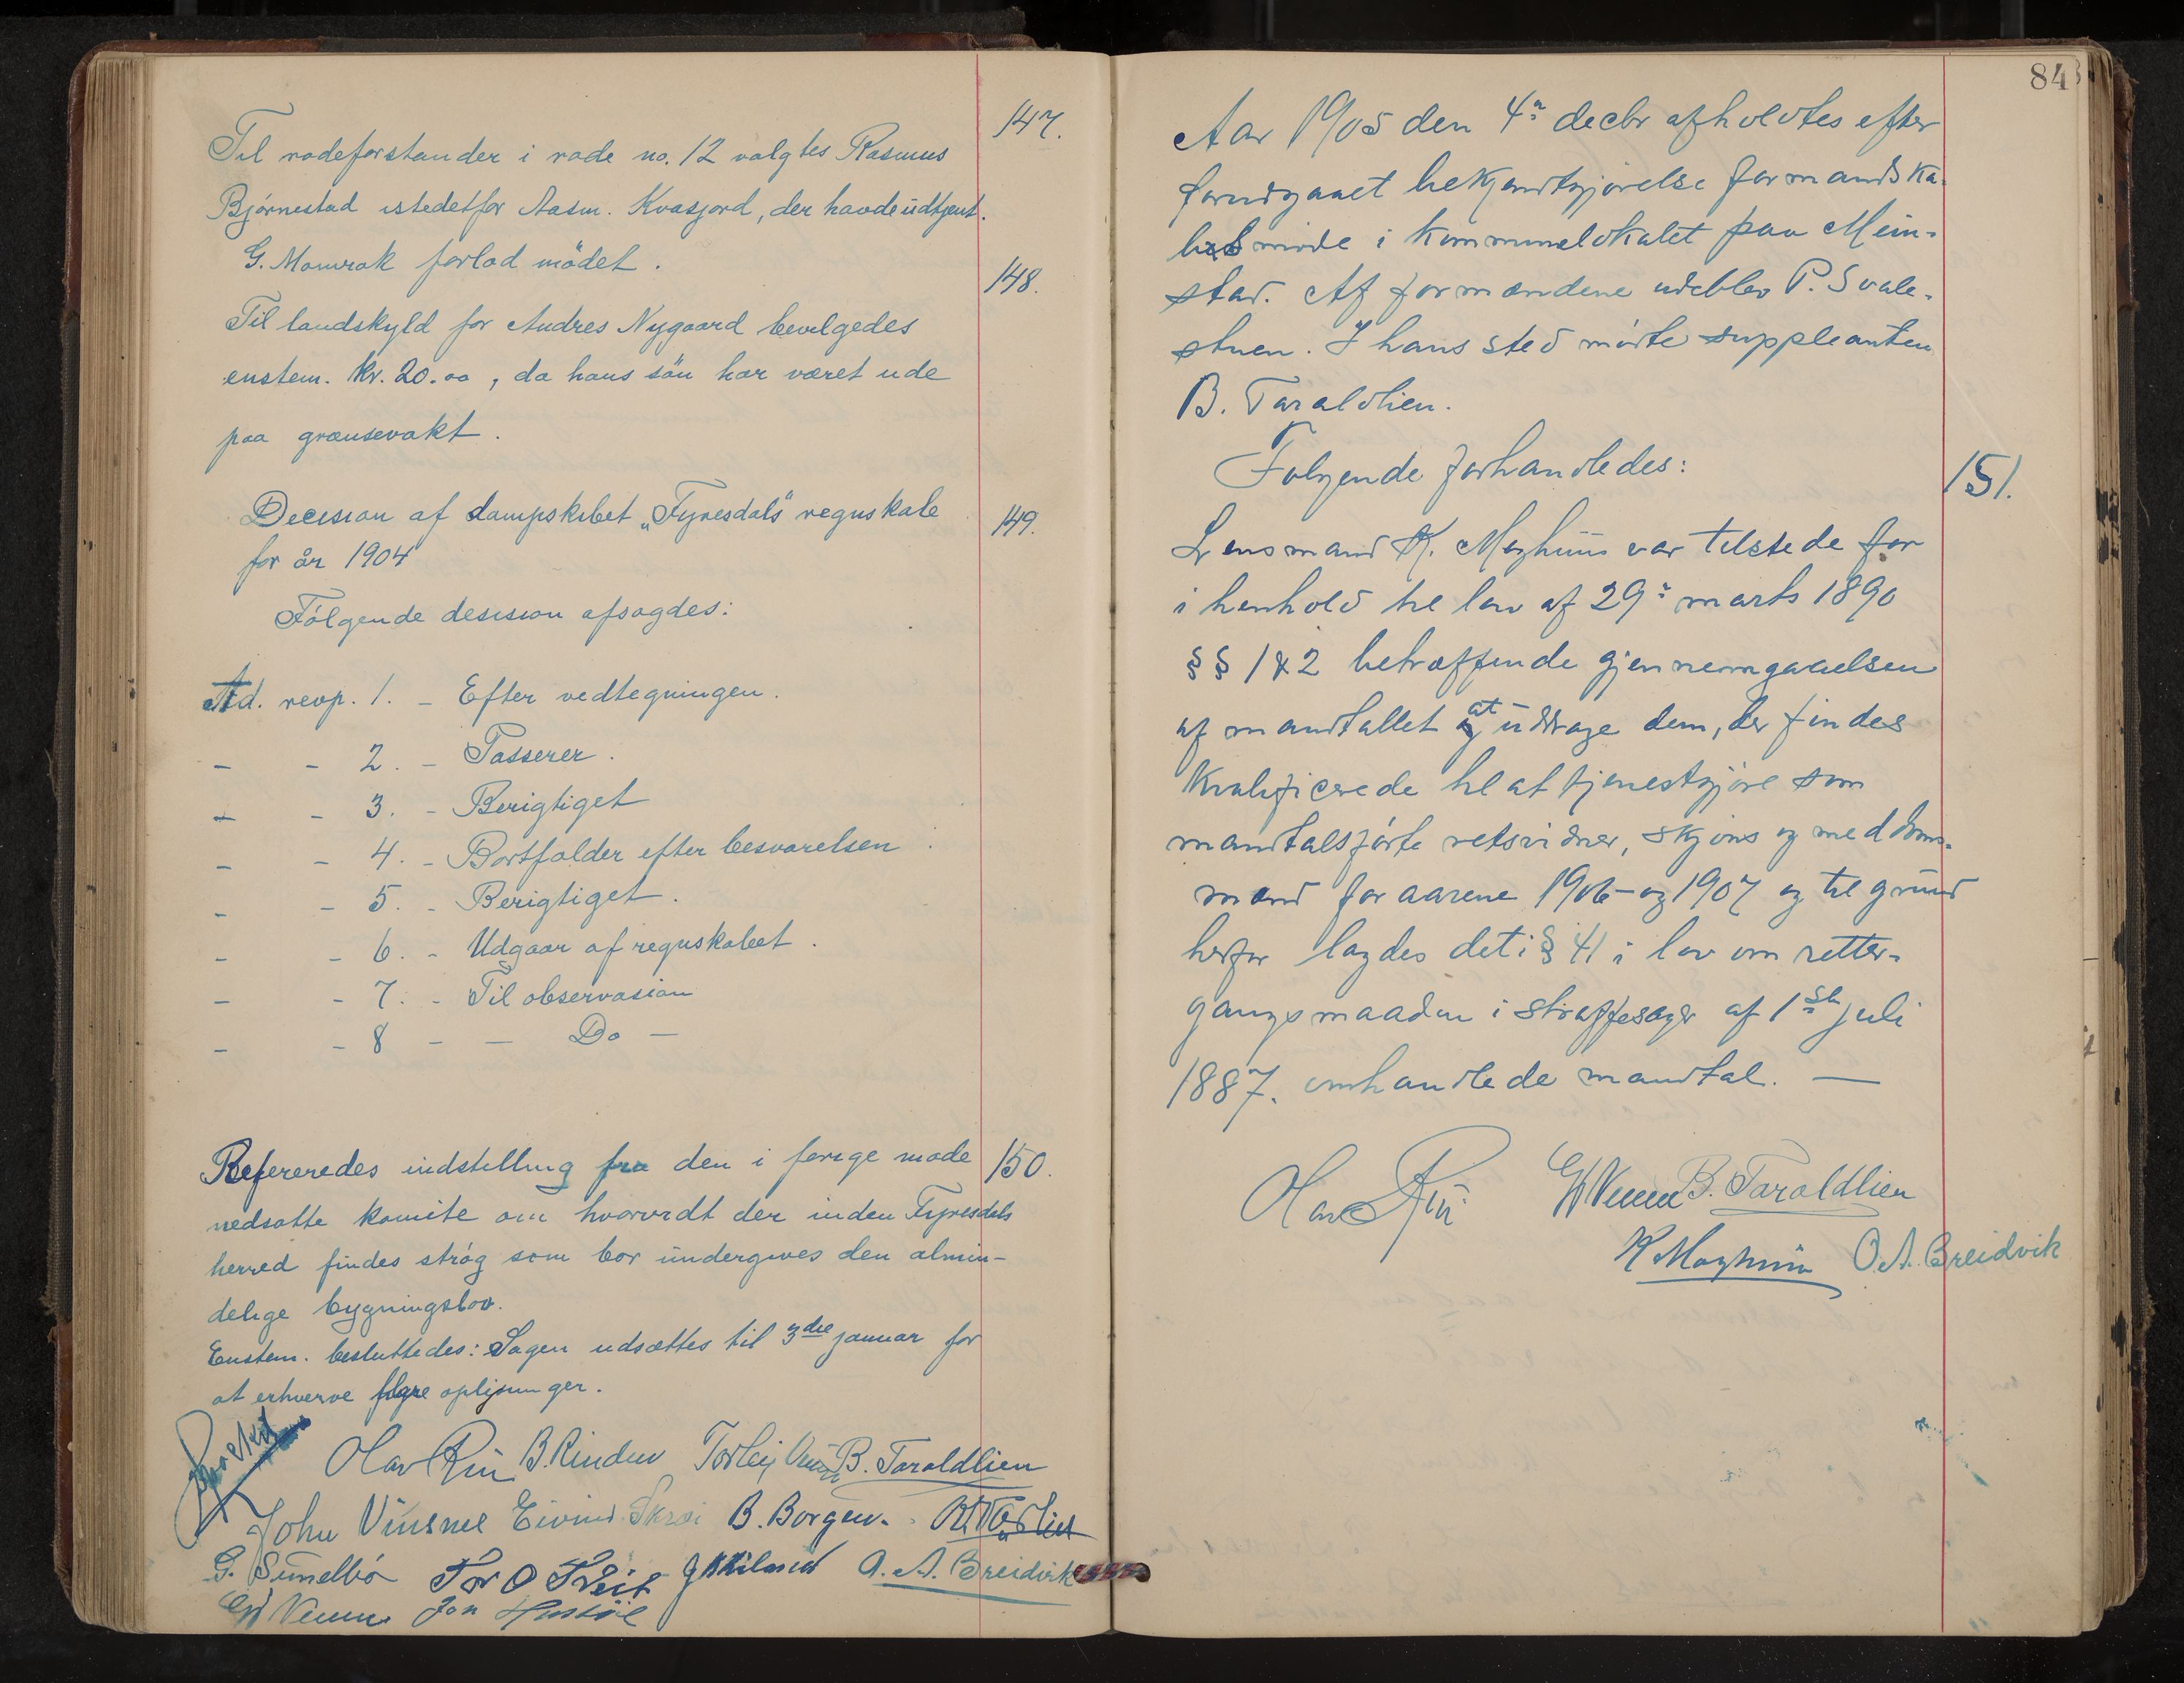 147.
Til rodeforstander i rode no. 12 valgtes Rasmus
Bjørnestad istedetfor Aasm. Kvasjord, der havde udtjent.
G. Momrak forlod mödet.
148.
Til landskyld for Andres Nygaard bevilgedes
enstem. kr. 20.00, da hans sön har været ude
paa grænsevakt.
149.
Decision af dampskibet „Fyresdals" regnskab
for år 1904
Fölgende desision afsagdes:
Ad. revp. 1. - Efter vedtegningen.
- - 2. - Passerer.
- - 3. - Berigtiget
- - 4. - Bortfalder efter besvarelsen
- - 5. - Berigtiget.
- - 6. - Udgaar af regnskabet.
- - 7. - Til observasion
- - 8 - - Do -
150.
Refereredes indstilling fra den i forige møde
nedsatte komite om hvorvidt der inden Fyresdals
herred findes strøg som bør undergives den almin-
delige bygningslov.
Enstem. besluttedes: Sagen udsættes til 3die januar for
at erhverve oplysninger.
Olav Rui B. Rinden Torleiv B. Taraldlien
John Vinsnæ Eivind Skrei B. Borgen.
G. Tor O Tveit O. A. Breidvik
Veum Jon
84
Aar 1905 den 4de decbr afholdtes efter
forudgaaet bekjendtgjørelse formandska-
bsmøde i kommunelokalet paa Mein-
stad. Af formændene udeblev P. Svale-
stuen. I hans sted mødte suppleanten
B. Taraldlien.
Følgende forhandledes:
151.
Lensmand K. Moghus var tilstede for
i henhold til lov af 29de marts 1890
§§ 1 & 2 betræffende gjennemgaaelsen
af mandtallet at uddrage dem, der findes
kvalificerede til at tjenestgjøre som
mandtalsførte retsvidner, skjøns og meddoms-
mænd for aarene 1906 og 1907 og til grund
herfor lagdes det i § 41 i lov om retter-
gangsmaaden i straffesager af 1ste juli
1887. omhandlede mandtal. —
Olav Rui Veum B. Taraldlien
K Moghus O. A. Breidvik